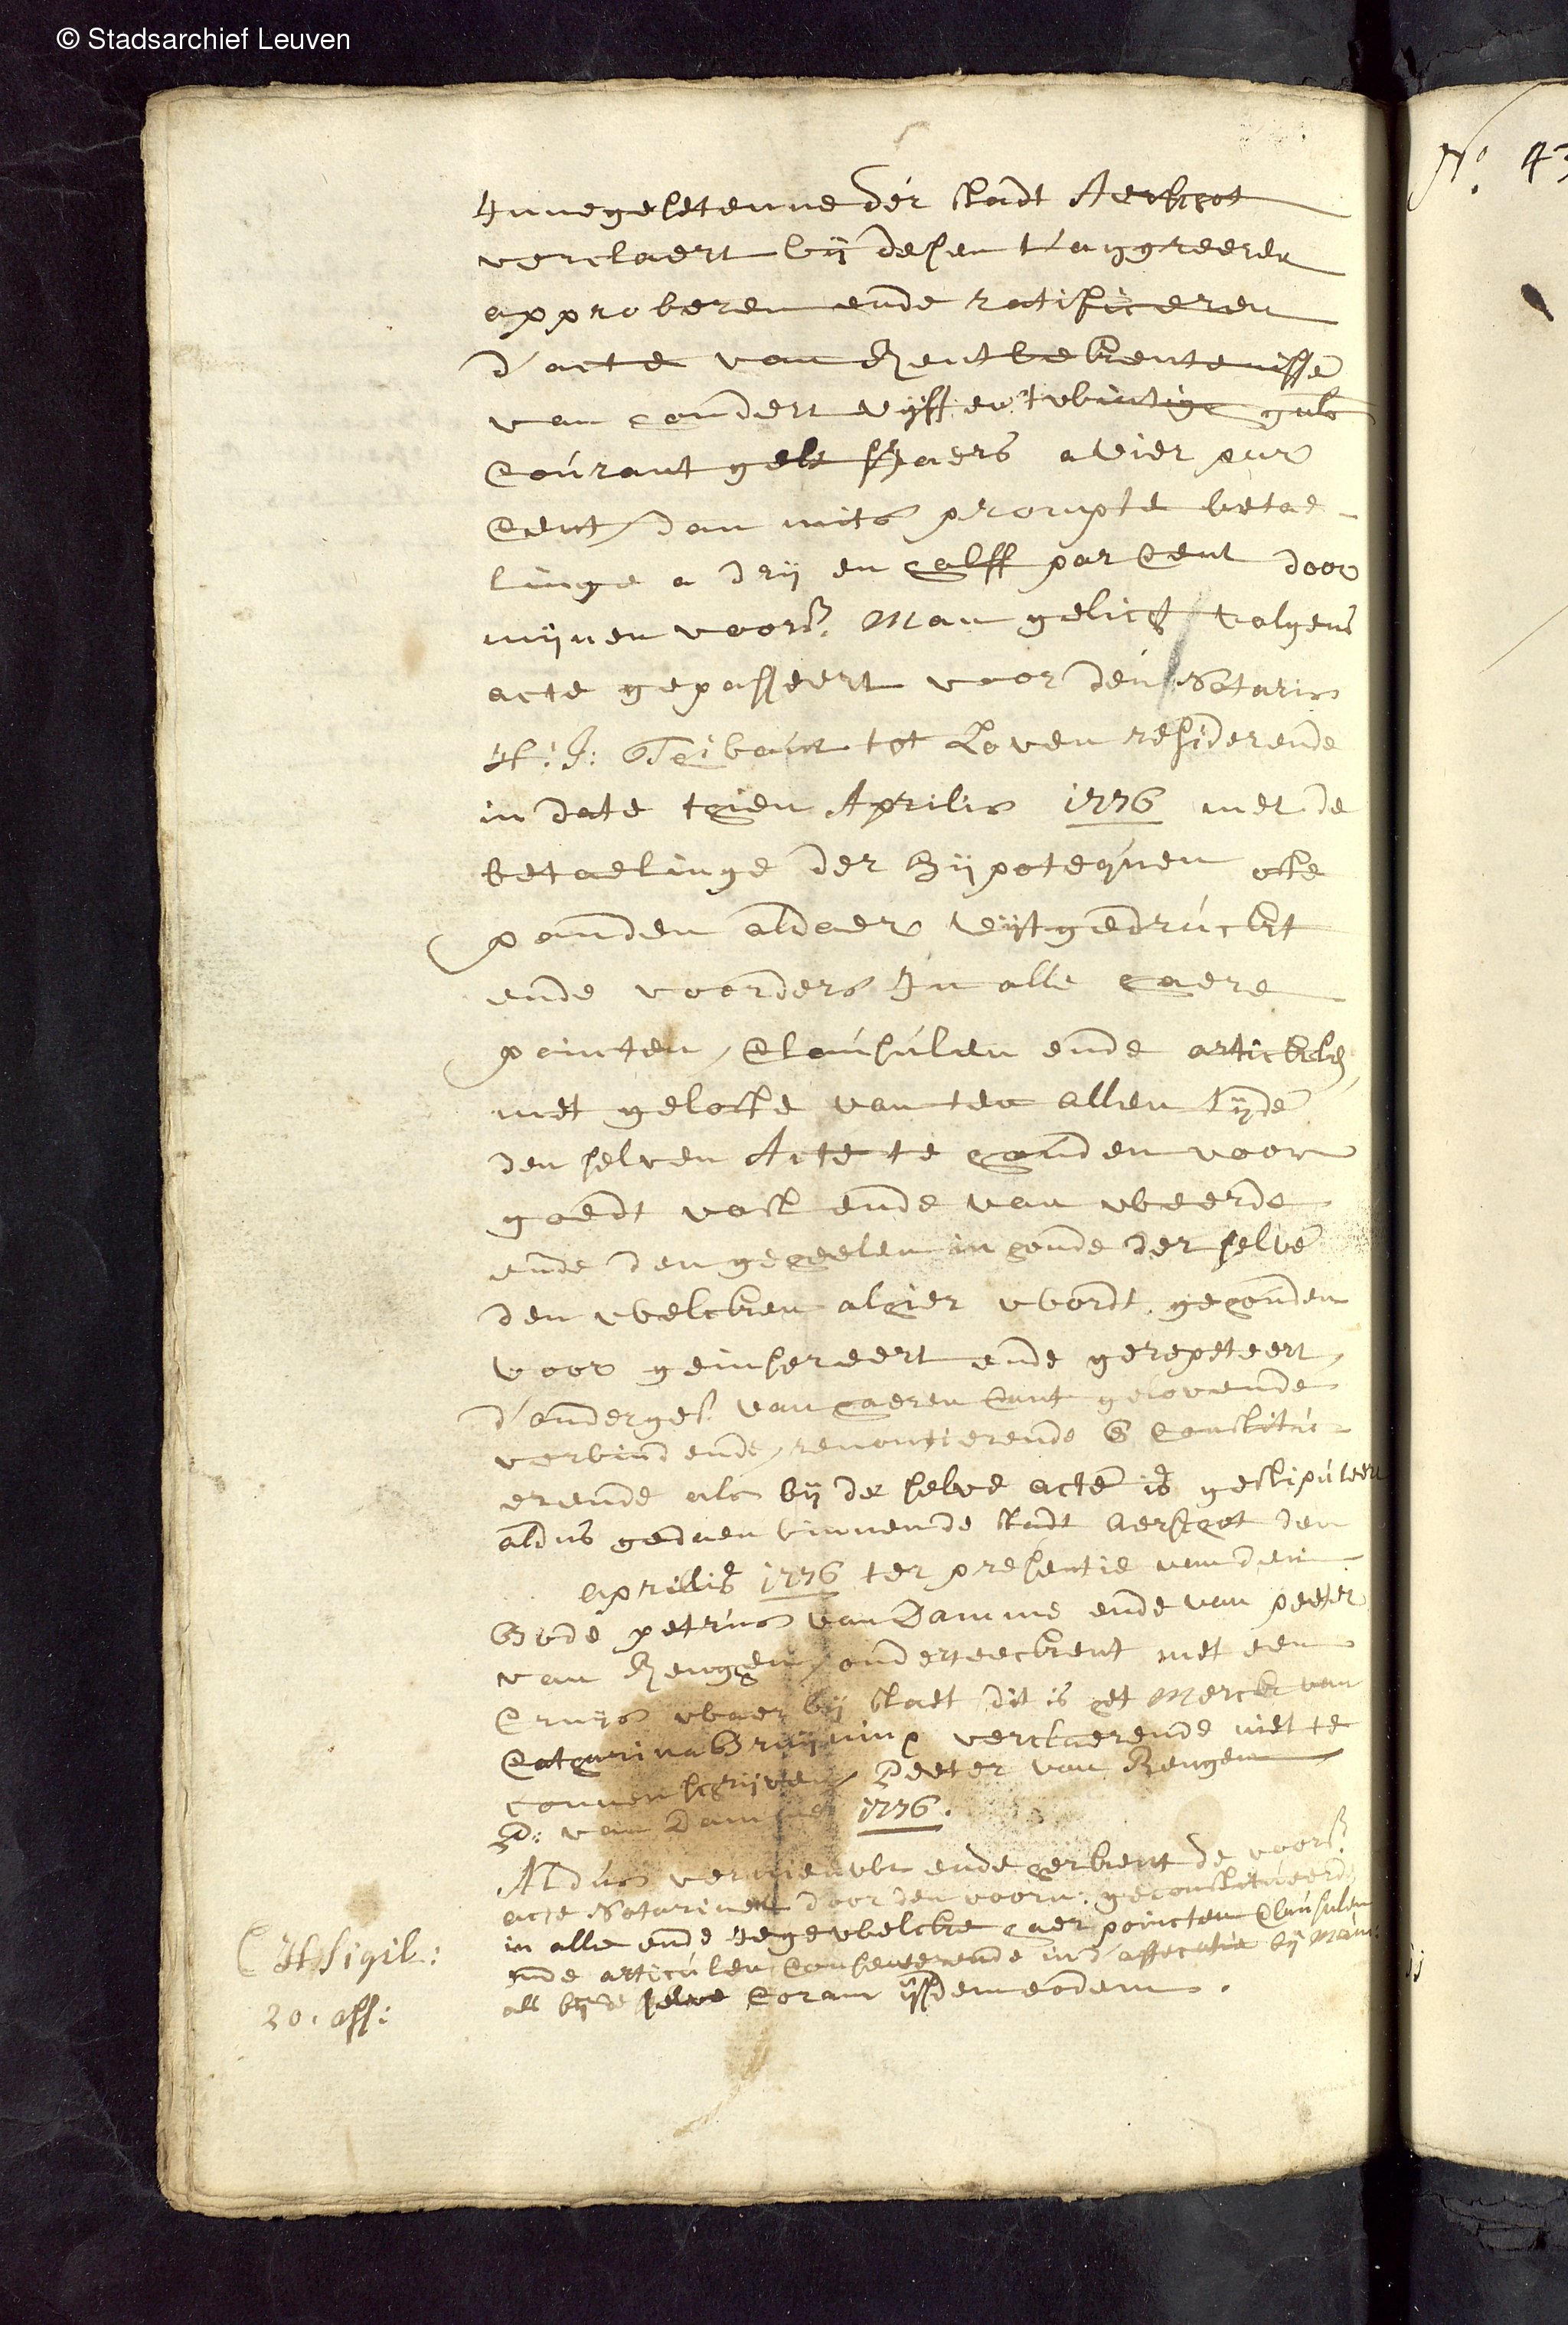 © Stadsarchief Leuven
No. 43
Innegesetenne der stadt Aerschot
verclaert bij desen t'aggreeren
approberen ende ratificeren
d'acte van Rentbekentenisse
van hondert vijff en twintigh guls
Courant gelt sjaers a vier par
Cent, dan mits prompte betae-
linge a drij en halff par Cent door
mijnen voors. Man gelicht volgens
acte gepasseert voor den Notaris
H: J: Thibaut tot Loven residerende
in date thien Aprilis 1776 met de
betaelinge der Hijpotequen ofte
panden aldaer uijtgedruckt
ende voorders In alle haere
pointen, Clausulen ende artickels
met gelofte van ten allen tijde
den selven Acte te houden voor
goedt vast ende van weerde
ende den geheelen inhoude der selve
den welcken alhier wordt gehouden
voor geinsereert ende gerepeteert
d'onderges. van haeren Cant gelovende
verbindende, renontierende & Constitu-
erende als bij de selve acte is gestipuleert
aldus gedaen binnen de stadt Aerschot den
aprillis 1776 ter presentie van den
Bode petrus van Damme ende van peeter
van Rengen, onderteeckent met een
Cruijs waer bij staet dit is het Merck van
Catharina Bruijninx verclaerende niet te
connen schrijven, Peeter van Rengen
P: van Damme 1776.
Aldus vernieuwt ende herkent de voors.
acte Notariael door den voorn: geconstitueerde
in alle ende iegewelcke haer poincten Clausulen
ende articulen Consenterende in d'affectatie bij Main:
als bij de selve Coram ijsdem eodem.
H sigil:
20. aff: